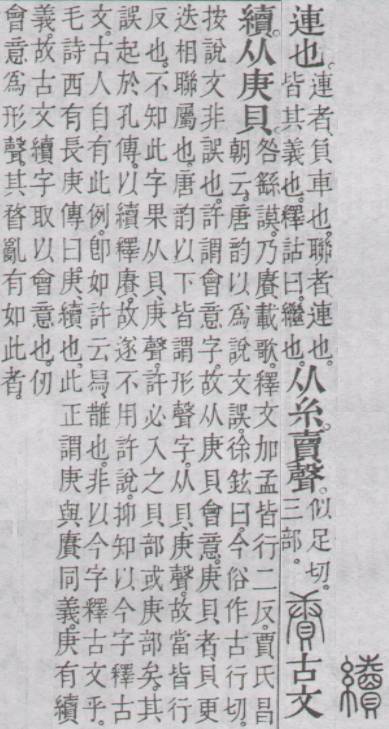 續
連也。
連者、負車也。聯者連也。
皆其義也。釋詁曰。繼也。
从糸。𧶠聲。
似足切。
三部。
賡古文
續。从庚貝。
咎繇謨。乃賡載歌。釋文加孟皆行二反。賈氏昌
朝云。唐韵以爲說文誤。徐鉉曰。今俗作古行切。
按說文非誤也。許謂會意字。故从庚貝會意。庚貝者、貝更
迭相聯屬也。唐韵以下皆謂形聲字。从貝、庚聲。故當皆行
反也。不知此字果从貝、庚聲。許必入之貝部或庚部矣。其
誤起於孔傳。以續釋賡。故遂不用許說。抑知以今字釋古
文。古人自有此例。卽如許云舄、䧿也。非以今字釋古文乎。
毛詩西有長庚傳曰。庚、續也。此正謂庚與賡同義。庚有續
義。故古文續字取以會意也。仞
會意爲形聲。其瞀亂有如此者。